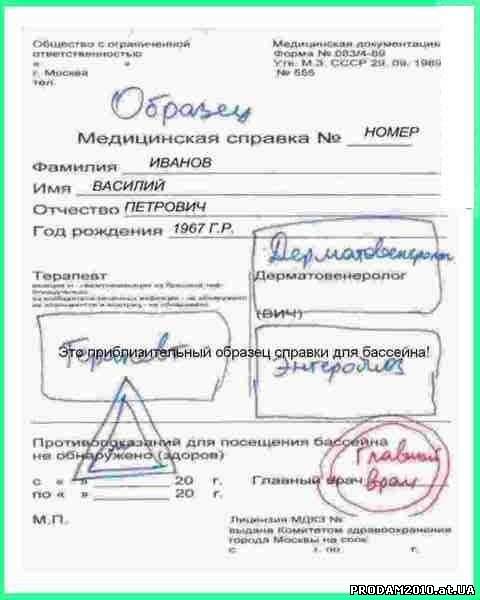 Общество с ограниченной
ответственностью
« »
г. Москва
тел.
Медицинская документация
Форма № 083/4-89
Утв. М.З. СССР 29. 09. 1989
№ 555
Образец
Медицинская справка № НОМЕР
Фамилия ИВАНОВ
Имя ВАСИЛИЙ
Отчество ПЕТРОВИЧ
Год рождения 1967 Г.Р.
Дерматовенеролог
Терапевт
Дерматовенеролог
(ВИЧ)
Терапевт
Это приблизительный образец справки для бассейна!
Энтеробиоз
Противопоказаний для посещения бассейна
не обнаружено (здоров)
Главный
врач
с « » 20 г.
Главный врач
по « » 20 г.
М.П.
Лицензия МДКЗ №
выдана Комитетом здравоохранения
города Москвы на срок
с г. по г.
PRODAM2010.at.UA